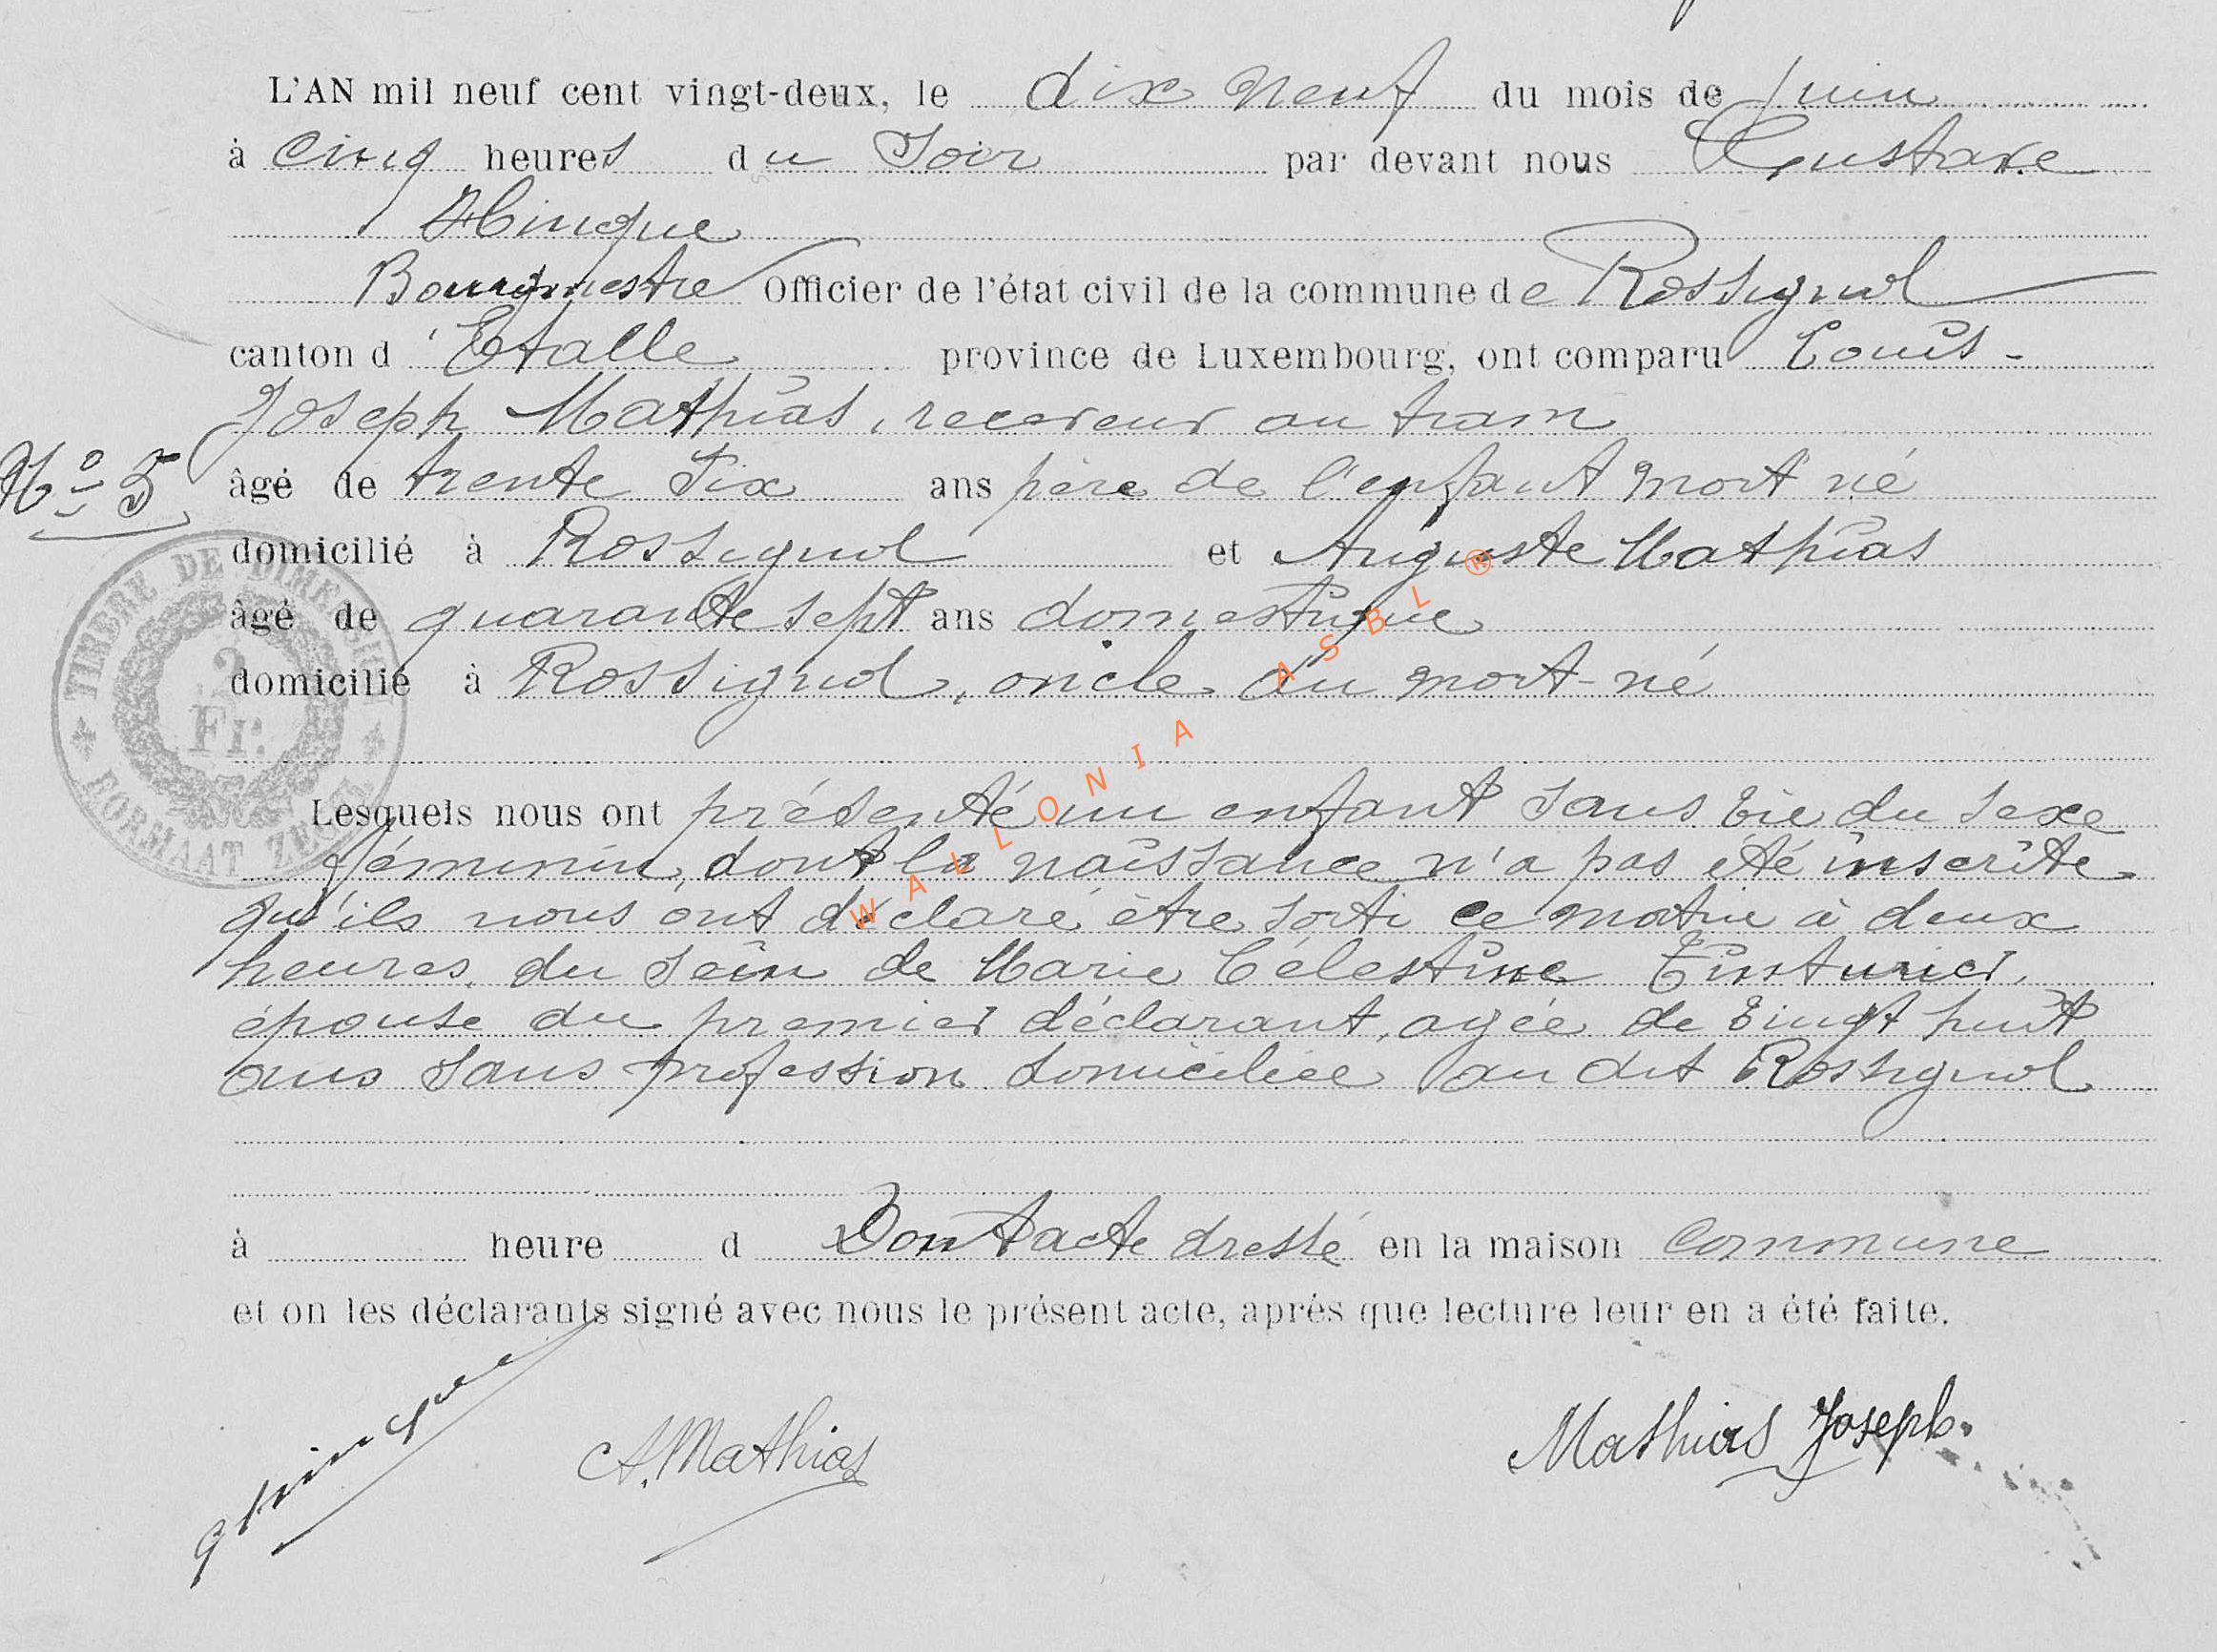 L'AN mil neuf cent vingt-deux, le dix neuf du mois de juin
à cinq heures du soir par devant nous Gustave
Hinque
Bourgmestre Officier de l'état civil de la commune de Rossignol
canton d'Etalle province de Luxembourg, ont comparu Louis-
Joseph Mathias, receveur au tram
N° 5
âgé de trente six ans père de l'enfant mort né
domicilié à Rossignol et Auguste Mathias
âgé de quarante sept ans domestique
domicilié à Rossignol, oncle du mort-né
TIMBRE DE DIMENSION
2 Fr.
FORMAAT ZEGEL
Lesquels nous ont présenté un enfant sans vie du sexe
féminin, dont la naissance n'a pas été inscrite
qu'ils nous ont déclaré être sorti ce matin à deux
heures du sein de Marie Célestine Tinturier,
épouse du premier déclarant, agée de vingt huit
ans sans profession domiciliée au dit Rossignol
à heure d Dont acte dressé en la maison commune
et on les déclarants signé avec nous le présent acte, après que lecture leur en a été faite.
ghinque
A. Mathias
Mathias Joseph.
WALLONIA ASBL ®